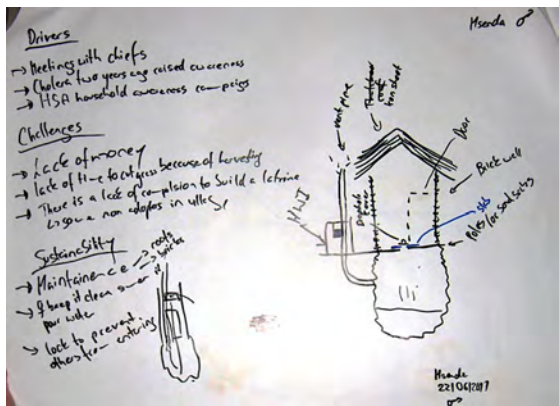 Msenda ♂
Drivers
→ Meetings with chiefs
→ Cholera two years ago raised awareness
→ HSA household awareness campaigns
Challenges
→ Lack of money
→ lack of time to cut grass because of harvesting
→ There is a lack of compulsion to build a latrine
non adopters in village
Sustainability
→ Maintainence → roofs
→ bricks
→ ♀ keep it clean
→ lock to prevent
others from entering
vent pipe
roof
Door
Brick wall
slab
poles for
HWF
floor
Msenda
22/06/2017
♂